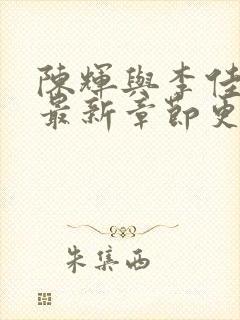 陳輝與李佳
最新章節更
朱集西